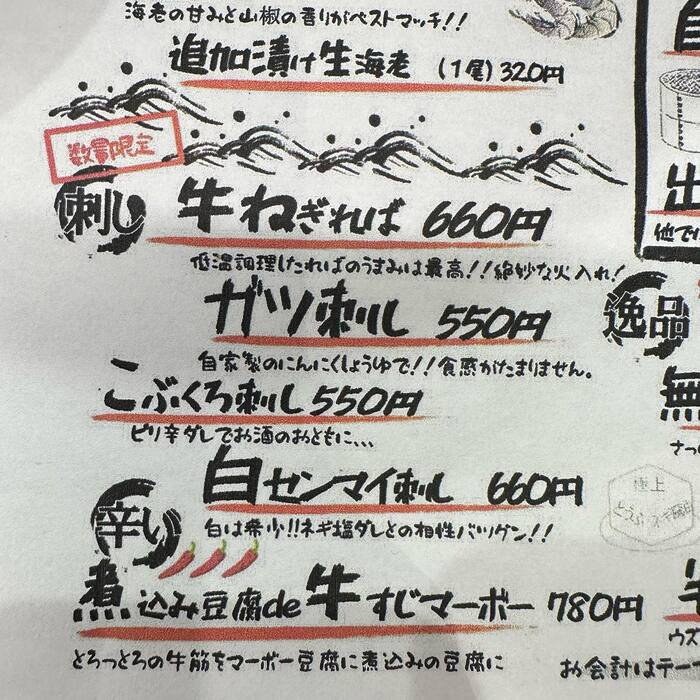 海老の甘みと山椒の香りがベストマッチ!!
追加漬け生海老 (1尾) 320円
数量限定
刺し
牛ねぎれば 660円
低温調理したればのうまみは最高!!絶妙な火入れ!
ガツ刺し 550円
自家製のにんにくしょうゆで!!食感がたまりません。
こぶくろ刺し 550円
ピリ辛ダレでお酒のおともに...
白センマイ刺し 660円
白は希少!!ネギ塩ダレとの相性バツグン!!
辛い
煮込み豆腐de牛すじマーボー 780円
とろっとろの牛筋をマーボー豆腐に煮込みの豆腐に
逸品
極上
お会計はテー